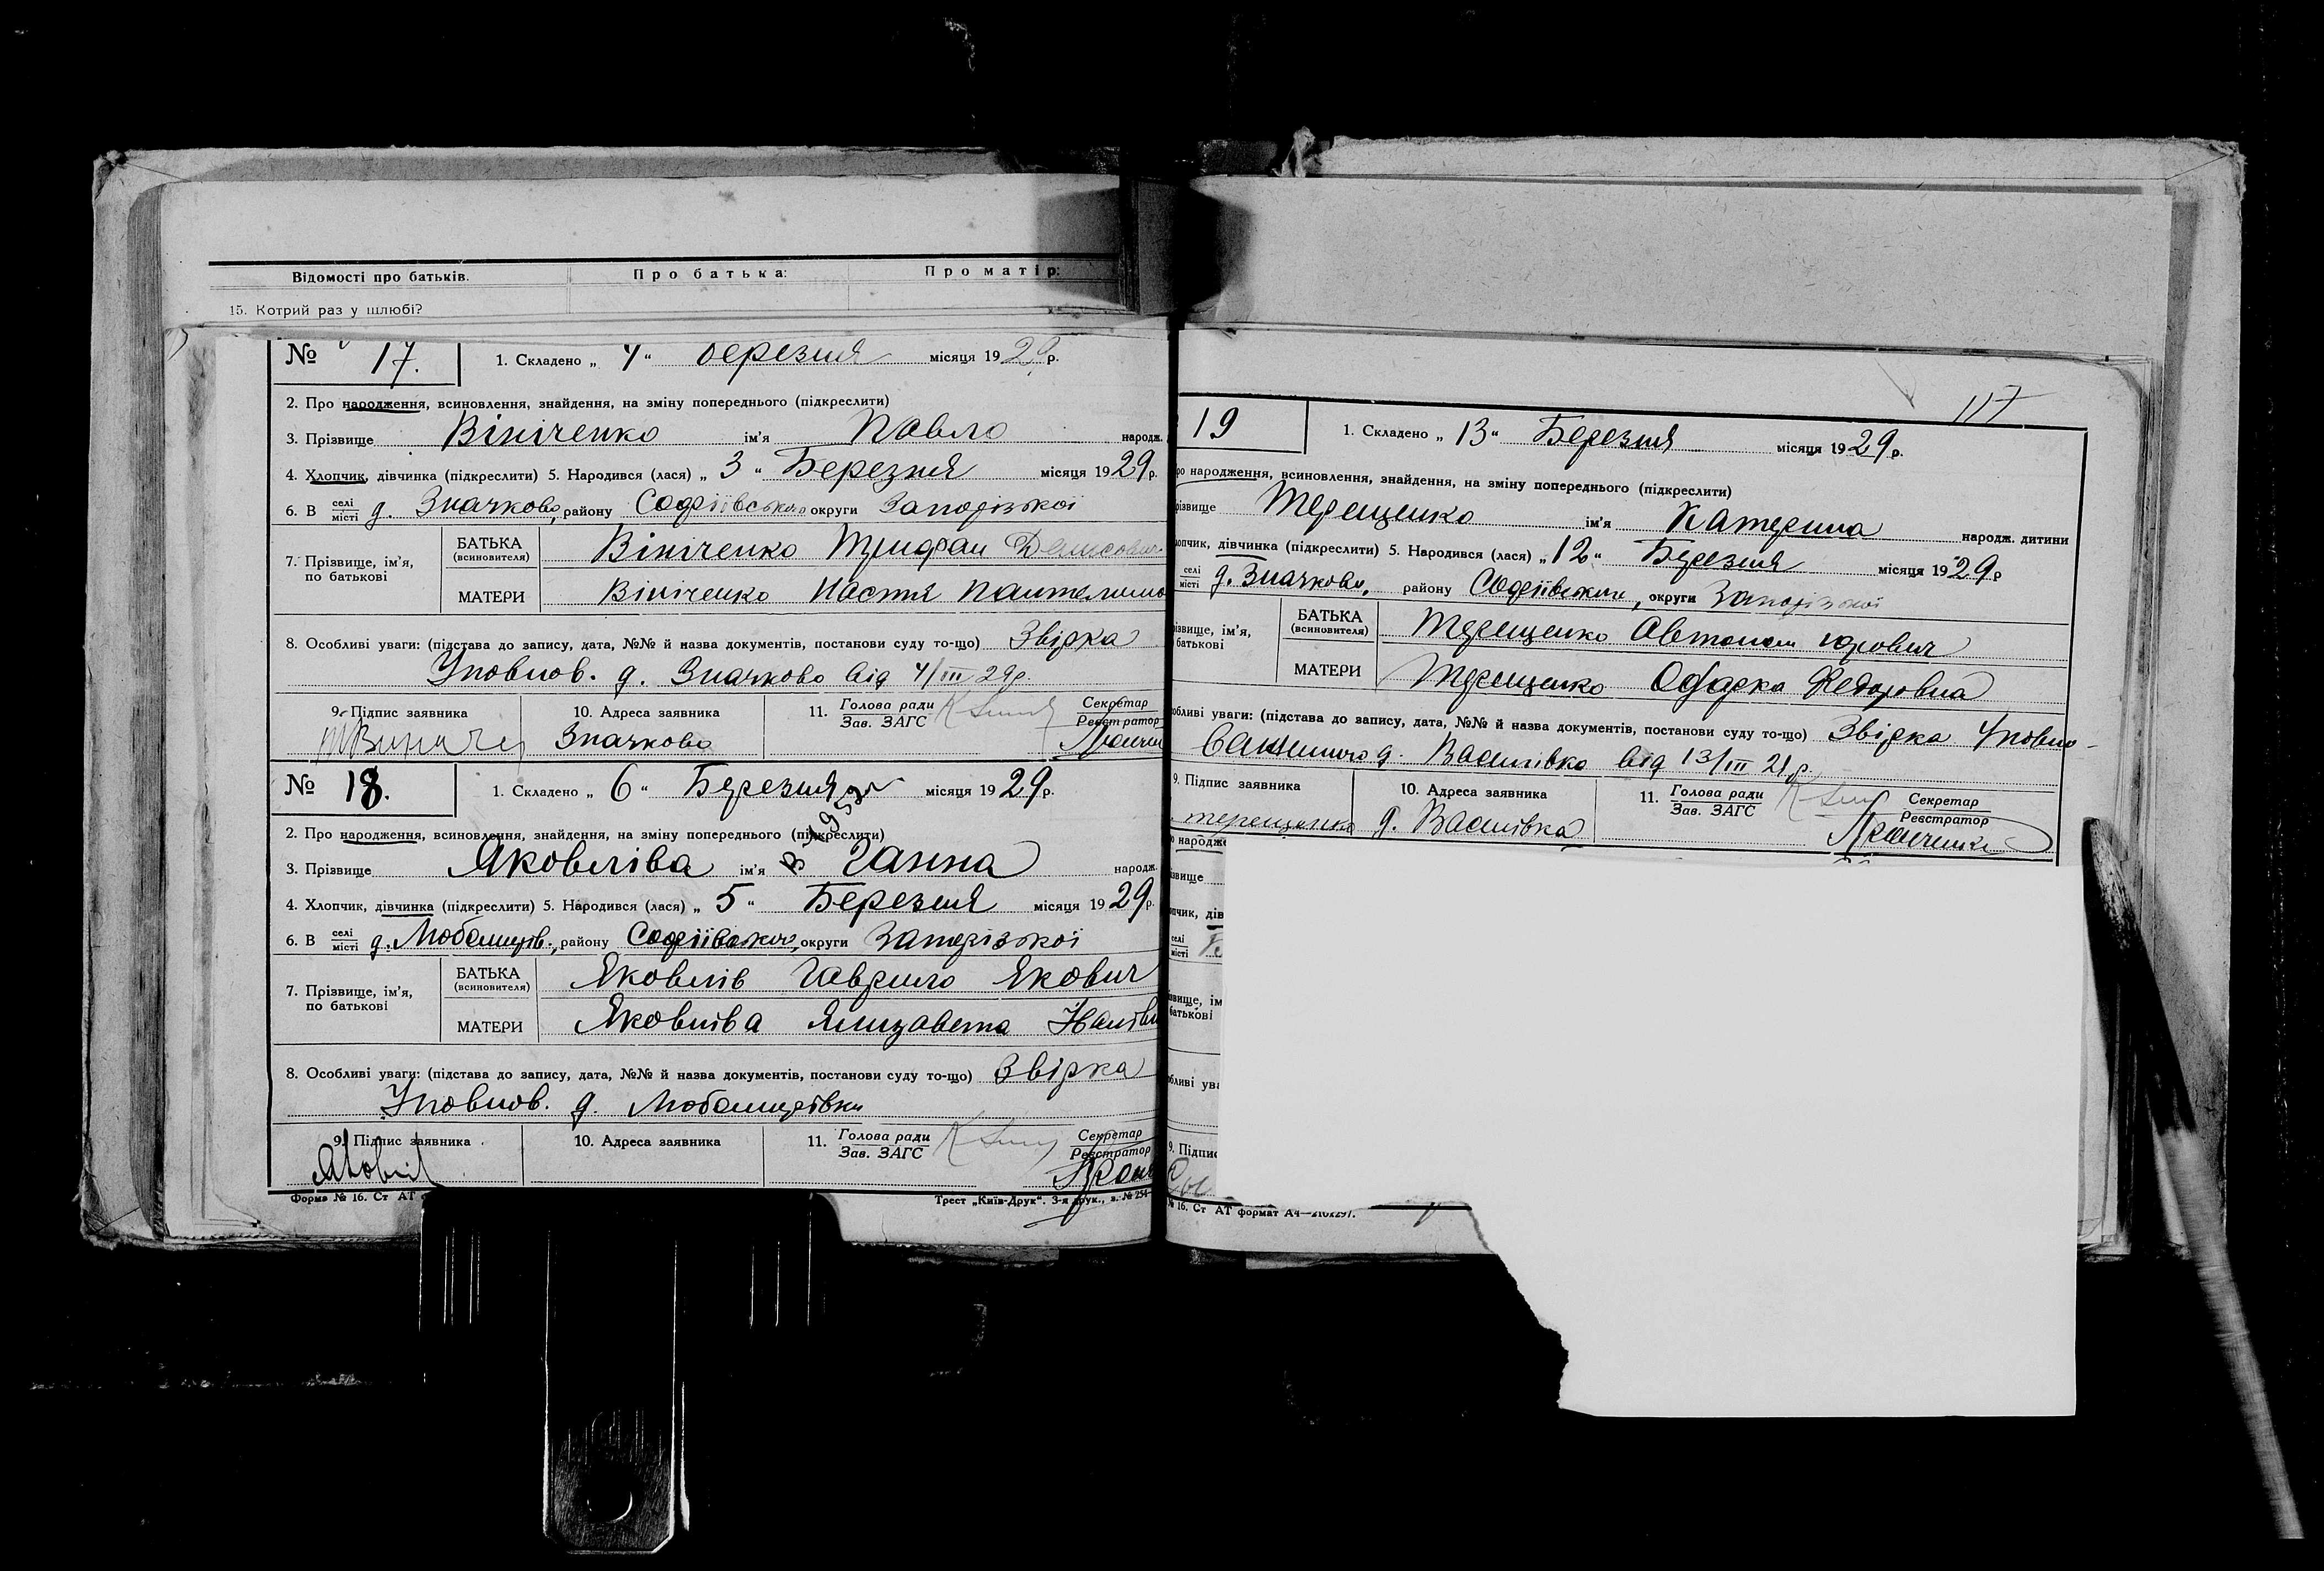 Відомості про батьків. Про батька: Про матір:
15. Котрий раз у шлюбі?
№ 17. 1. Складено „ 4 “ березня місяця 1929 р.
2. Про народження, всиновлення, знайдення, на зміну попереднього (підкреслити)
3. Прізвище Вініченко ім’я Павло народж.
4. Хлопчик, дівчинка (підкреслити) 5. Народився (лася) „ 3 “ Березня місяця 1929 р.
6. В селі місті д. Значково, району Софіївського округи Запорізької
7. Прізвище, ім’я, по батькові
БАТЬКА (всиновителя) Вініченко Трифан Денисович
МАТЕРИ Вініченко Настя
8. Особливі уваги: (підстава до запису, дата, №№ й назва документів, постанови суду то-що) Звірка
Уповнов. д. Значково від 4/III 29р.
9. Підпис заявника 10. Адреса заявника 11. Голова ради Зав. ЗАГС Секретар Реєстратор
Значково
№ 18. 1. Складено „ 6 “ Березня місяця 1929 р.
2. Про народження, всиновлення, знайдення, на зміну попереднього (підкреслити)
3. Прізвище Яковліва ім’я Ганна народж.
4. Хлопчик, дівчинка (підкреслити) 5. Народився (лася) „ 5 “ Березня місяця 1929 р.
6. В селі місті д. району Софіївського, округи Запорізької
7. Прізвище, ім’я, по батькові
БАТЬКА (всиновителя) Яковлів Гаврило Якович
МАТЕРИ Яковліва Ялизавета
8. Особливі уваги: (підстава до запису, дата, №№ й назва документів, постанови суду то-що) Звірка
Уповнов. д.
9. Підпис заявника 10. Адреса заявника 11. Голова ради Зав. ЗАГС Секретар Реєстратор
Форма № 16. Ст АТ Трест „Київ-Друк“. 3-я друк., з. № 254
117
19 1. Складено „ 13 “ Березня місяця 1929 р.
ро народження, всиновлення, знайдення, на зміну попереднього (підкреслити)
різвище Терещенко ім’я Катерина народж. дитини
опчик, дівчинка (підкреслити) 5. Народився (лася) „ 12 “ Березня місяця 1929 р
селі місті д. Значково, району Софіївського, округи Запорізької
ізвище, ім’я, батькові
БАТЬКА (всиновителя) Терещенко Автоном Юрович
МАТЕРИ Терещенко Одарка Федоровна
обливі уваги: (підстава до запису, дата, №№ й назва документів, постанови суду то-що) Звірка Уповно-
важеного д. Василівка від 13/III 21 р.
9. Підпис заявника 10. Адреса заявника 11. Голова ради Зав. ЗАГС Секретар Реєстратор
терещенко д. Василівка
о народже
звище
пчик, дів
селі місті
звище, ім
батькові
бливі ува
9. Підпис
№ 16. Ст АТ формат А4—210х297.